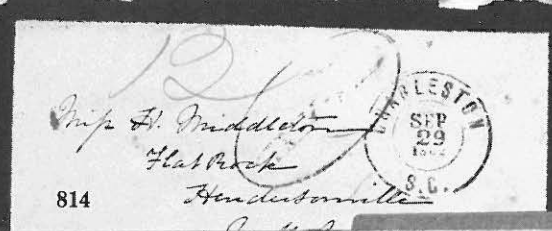 12
CHARLESTON
SEP
29
S.C.
Miss H. Middleton
Flat Rock
Hendersonville
814